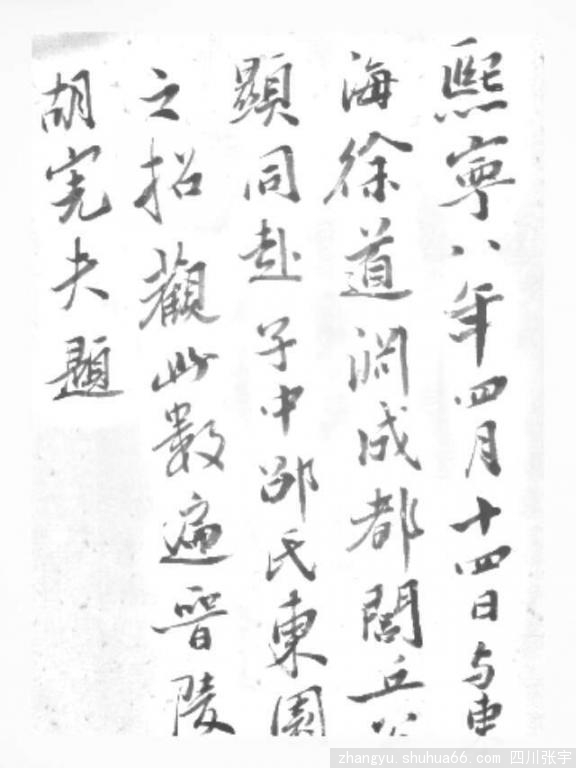 熙寧八年四月十四日与東
海徐道淵成都閭丘公
顯同赴子中邵氏東園
之招觀此數遍晉陵
胡完夫題
zhangyu.shuhua66.com 四川张宇